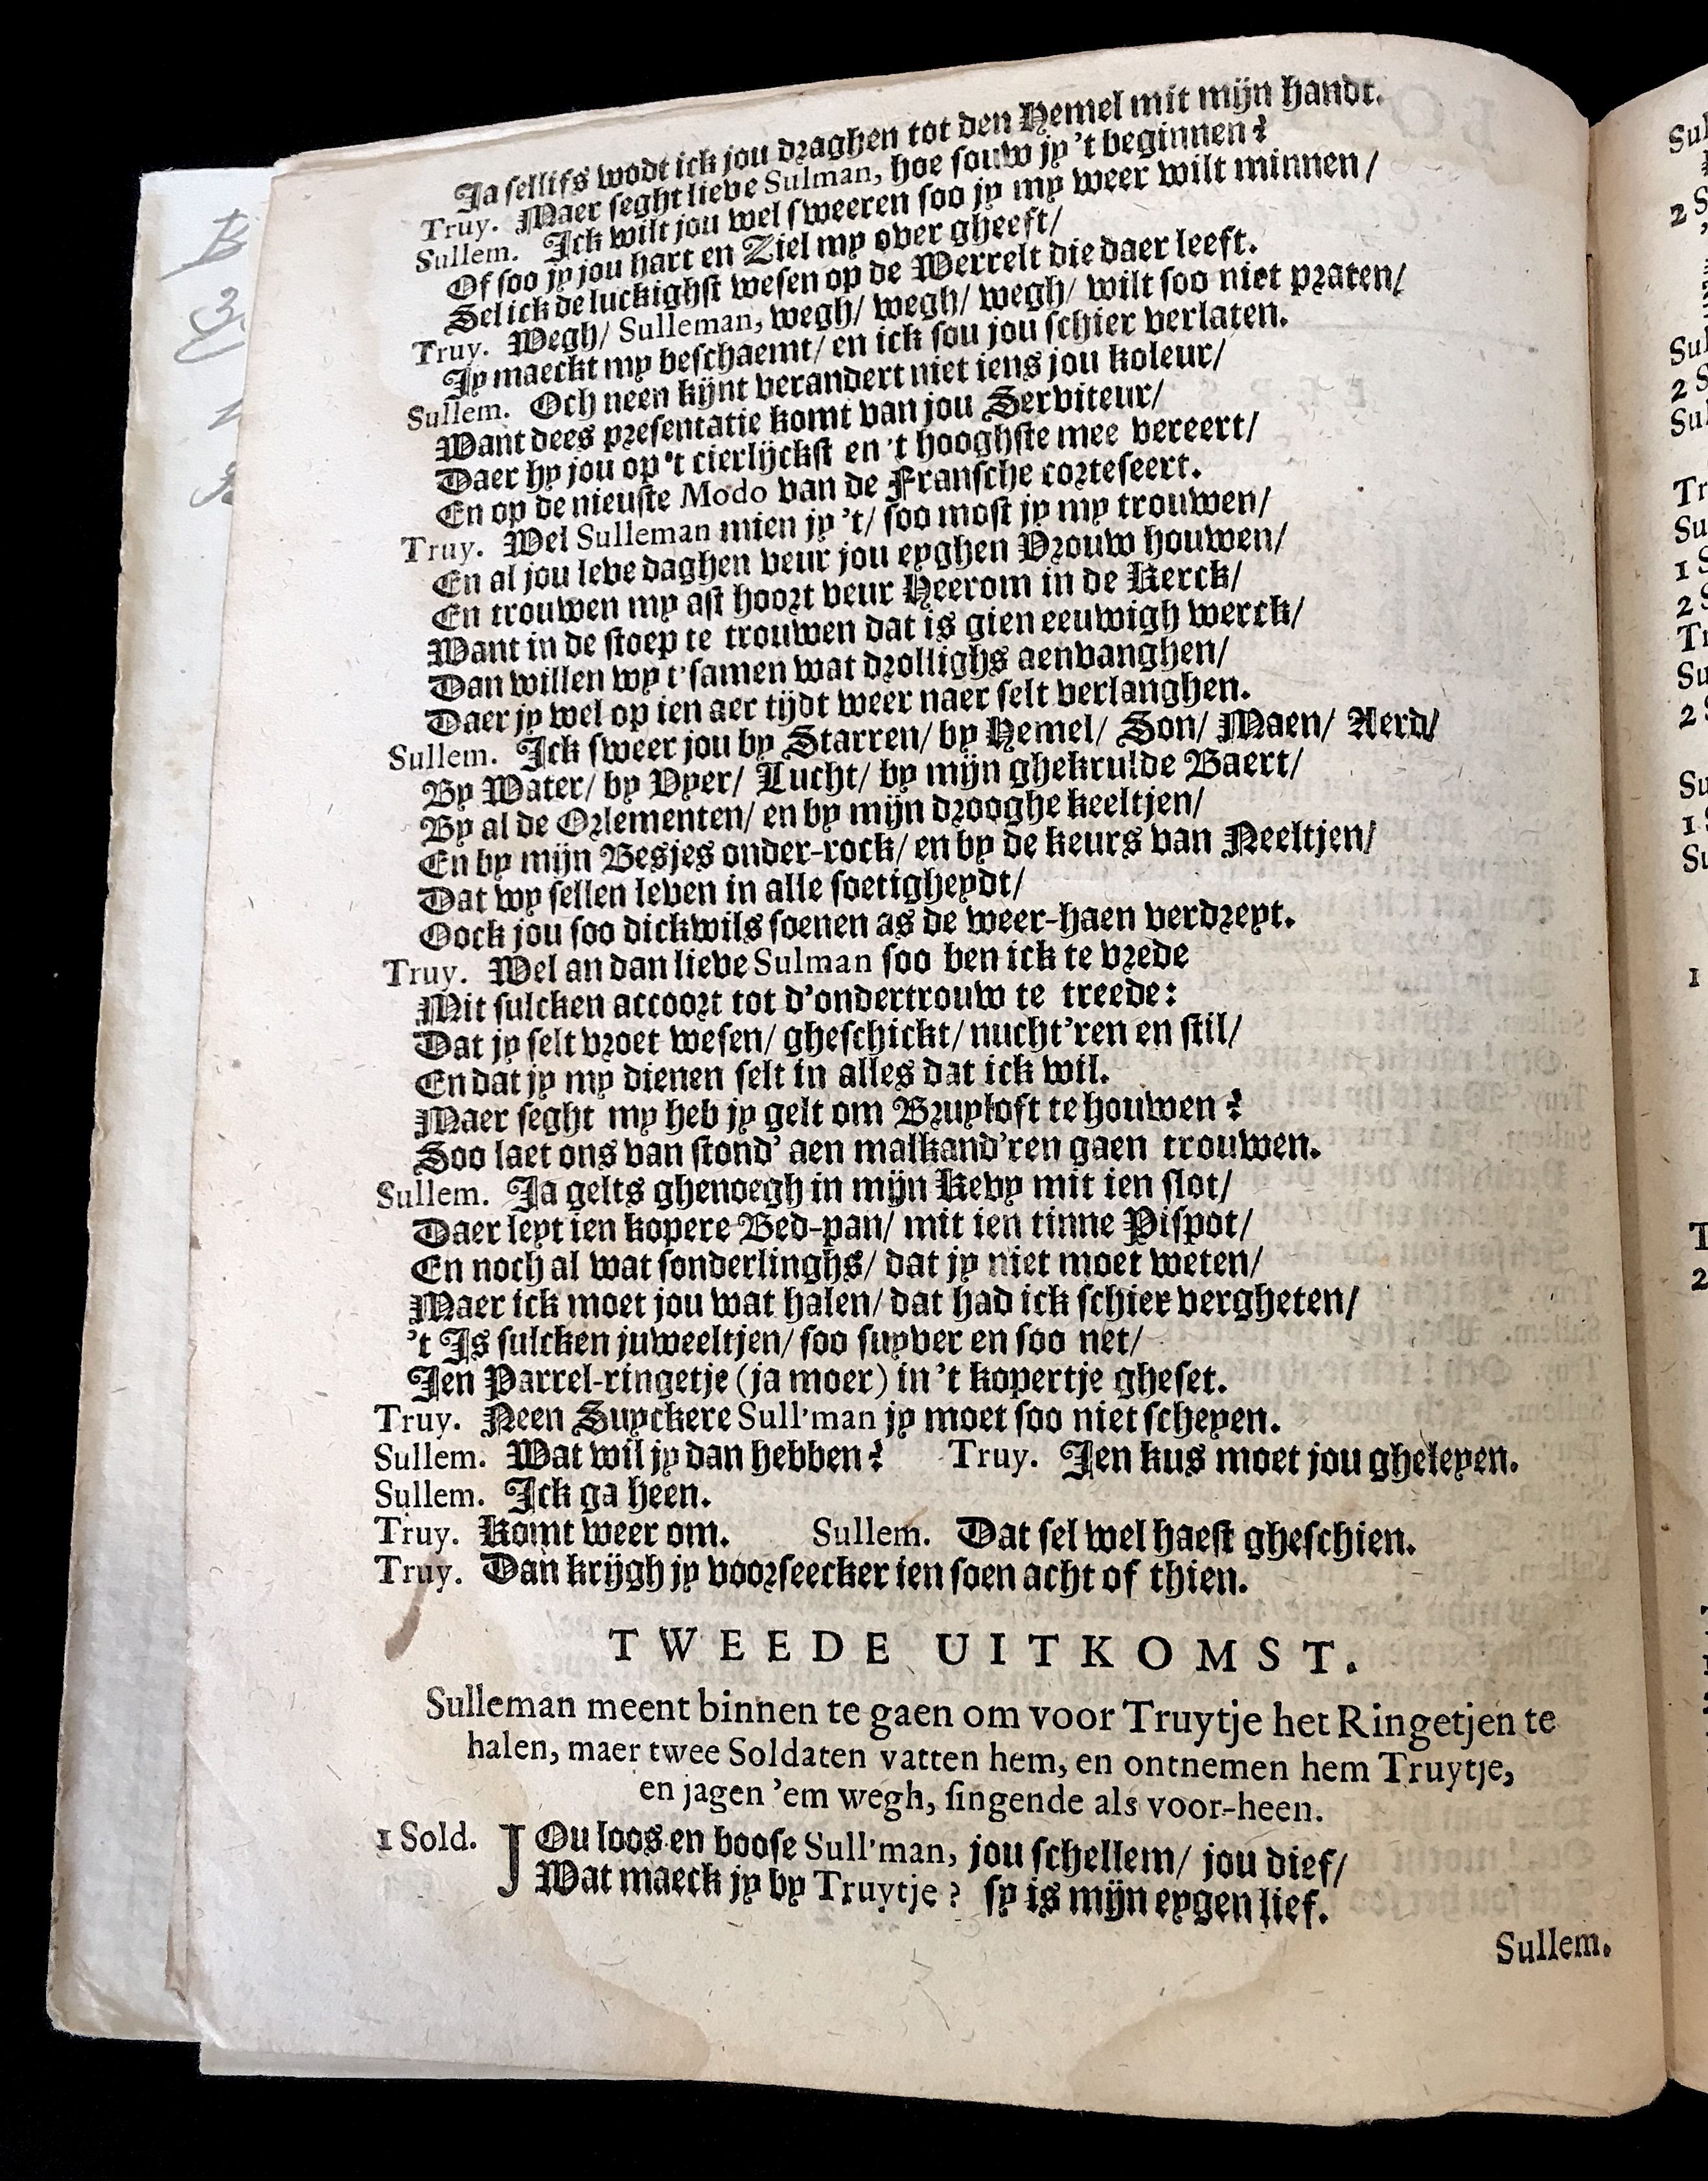 Ja sellifs wodt ick jou draghen tot den Hemel mit mijn handt.
Truy. Maer seght lieve Sulman, hoe souw jy 't beginnen?
Sullem. Ick wilt jou wel sweeren soo jy my weer wilt minnen/
Of soo jy jou hart en Ziel my over gheeft/
Sel ick de luckighst wesen op de Werrelt die daer leeft.
Truy. Wegh/ Sulleman, wegh/ wegh/ wegh/ wilt soo niet praten/
Jy maeckt my beschaemt/ en ick sou jou schier verlaten.
Sullem. Och neen kijnt verandert niet iens jou koleur/
Want dees presentatie komt van jou Serviteur/
Daer hy jou op 't cierlijckst en 't hooghste mee vereert/
En op de nieuste Modo van de Fransche corteseert.
Truy. Wel Sulleman mien jy 't/ soo most jy my trouwen/
En al jou leve daghen veur jou eyghen Vrouw houwen/
En trouwen my ast hoort veur Heerom in de Kerck/
Want in de stoep te trouwen dat is gien eeuwigh werck/
Dan willen wy t'samen wat drollighs aenvanghen/
Daer jy wel op ien aer tijdt weer naer selt verlanghen.
Sullem. Ick sweer jou by Starren/ by Hemel/ Son/ Maen/ Aerd/
By Water/ by Vyer/ Lucht/ by mijn ghekrulde Baert/
By al de Orlementen/ en by mijn drooghe keeltjen/
En by mijn Besjes onder-rock/ en by de keurs van Neeltjen/
Dat wy sellen leven in alle soetigheydt/
Oock jou soo dickwils soenen as de weer-haen verdreyt.
Truy. Wel an dan lieve Sulman soo ben ick te vrede
Mit sulcken accoort tot d'ondertrouw te treede:
Dat jy selt vroet wesen/ gheschickt/ nucht'ren en stil/
En dat jy my dienen selt in alles dat ick wil.
Maer seght my heb jy gelt om Bruyloft te houwen?
Soo laet ons van stond' aen malkand'ren gaen trouwen.
Sullem. Ja gelts ghenoegh in mijn Kevy mit ien slot/
Daer leyt ien kopere Bed-pan/ mit ien tinne Pispot/
En noch al wat sonderlinghs/ dat jy niet moet weten/
Maer ick moet jou wat halen/ dat had ick schier vergheten/
't Is sulcken juweeltjen/ soo suyver en soo net/
Ien Parrel-ringetje (ja moer) in 't kopertje gheset.
Truy. Neen Suyckere Sull'man jy moet soo niet scheyen.
Sullem. Wat wil jy dan hebben? Truy. Ien kus moet jou gheleyen.
Sullem. Ick ga heen.
Truy. Komt weer om. Sullem. Dat sel wel haest gheschien.
Truy. Dan krijgh jy voorseecker ien soen acht of thien.
TWEEDE UITKOMST.
Sulleman meent binnen te gaen om voor Truytje het Ringetjen te
halen, maer twee Soldaten vatten hem, en ontnemen hem Truytje,
en jagen 'em wegh, singende als voor-heen.
1 Sold. JOu loos en boose Sull'man, jou schellem/ jou dief/
Wat maeck jy by Truytje? sy is mijn eygen lief.
Sullem.